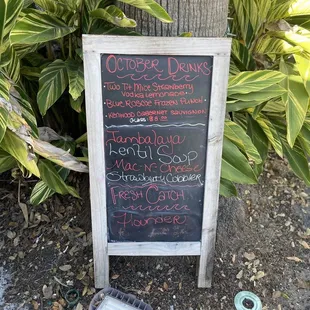 October Drinks
• Two Tit Mice Strawberry
Vodka Lemonade •
• Blue Roscoe Frozen Punch •
• Kenwood Cabernet Sauvignon
Glass
Jambalaya
Lentil Soup
Mac N Cheese
Strawberry Cobbler
Fresh Catch
Flounder